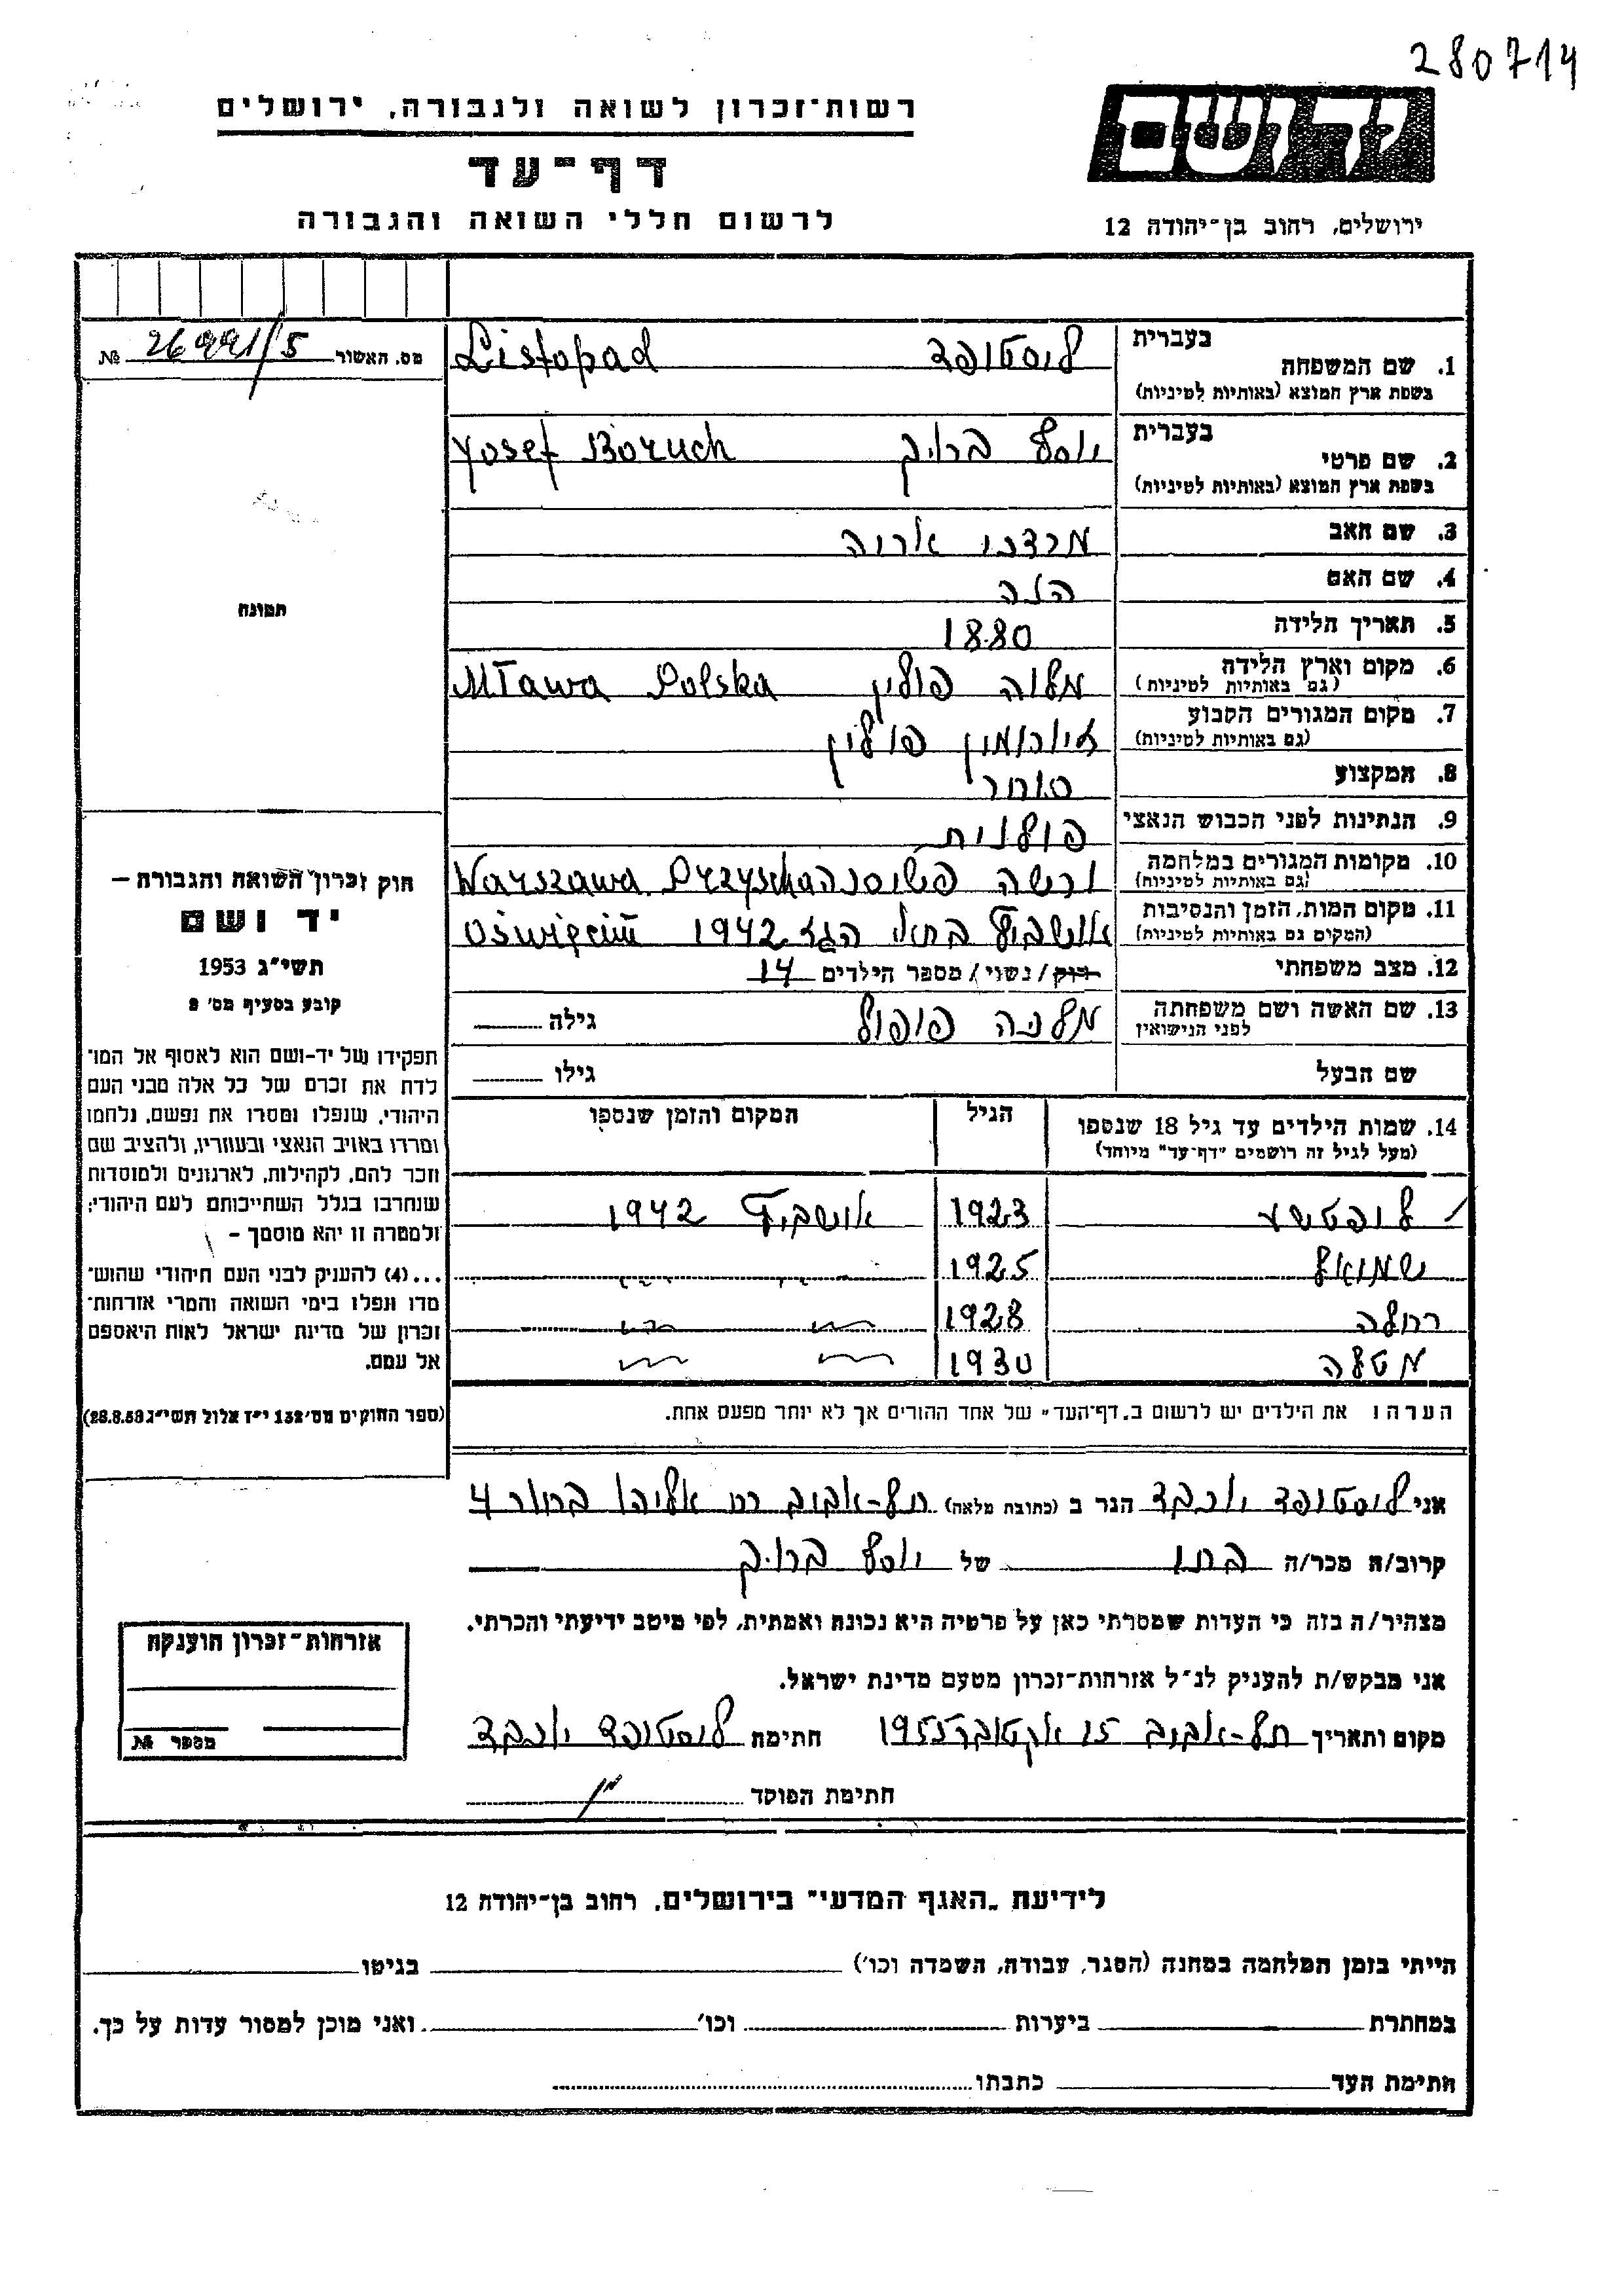 280714
יד ושם
רשות־זכרון לשואה ולגבורה, ירושלים
דף־עד
לרשום חללי השואה והגבורה
ירושלים, רחוב בן־יהודה 12
מס. האשור 26991/5 №
בעברית
1. שם המשפחה
בשפת ארץ המוצא (באותיות לטיניות)
ליסטופד Listopad
בעברית
2. שם פרטי
בשפת ארץ המוצא (באותיות לטיניות)
יוסף ברוך Yosef Boruch
3. שם האב מרדכי אריה
4. שם האם הלה
5. תאריך הלידה 1880
6. מקום וארץ הלידה מלוה פולין Mława Polska
(גם באותיות לטיניות)
7. מקום המגורים הקבוע פולין
(גם באותיות לטיניות)
8. המקצוע סוחר
9. הנתינות לפני הכבוש הנאצי פולנית
10. מקומות המגורים במלחמה ורשה Warszawa
(גם באותיות לטיניות)
11. מקום המות, הזמן והנסיבות אושביץ בתאי הגז 1942 Oświęcim
(המקום גם באותיות לטיניות)
12. מצב משפחתי רוק/נשוי/ מספר הילדים 14
13. שם האשה ושם משפחתה מלכה פופול גילה
לפני הנישואין
שם הבעל גילו
14. שמות הילדים עד גיל 18 שנספו הגיל המקום והזמן שנספו
(מעל לגיל זה רושמים "דף־עד" מיוחד)
ליפטשע 1923 אושביץ 1942
שמואל 1925 " "
רחלה 1928 " "
מטלה 1930 " "
הערה: את הילדים יש לרשום ב„דף־העד" של אחד ההורים אך לא יותר מפעם אחת.
תמונה
חוק זכרון השואה והגבורה —
יד ושם
תשי"ג 1953
קובע בסעיף מס' 2
תפקידו של יד־ושם הוא לאסוף אל המו־
לדת את זכרם של כל אלה מבני העם
היהודי, שנפלו ומסרו את נפשם, נלחמו
ומרדו באויב הנאצי ובעוזריו, ולהציב שם
וזכר להם, לקהילות, לארגונים ולמוסדות
שנחרבו בגלל השתייכותם לעם היהודי;
ולמטרה זו יהא מוסמך —
...(4) להעניק לבני העם היהודי שהוש־
מדו ונפלו בימי השואה והמרי אזרחות־
זכרון של מדינת ישראל לאות היאספם
אל עמם.
(ספר החוקים מס' 132 י"ז אלול תשי"ג 28.8.53)
אני ליסטופד יוכבד הגר ב (כתובת מלאה) תל-אביב רח אליהו בחור 4
קרוב/ה מכר/ה בתו של יוסף ברוך
מצהיר/ה בזה כי העדות שמסרתי כאן על פרטיה היא נכונה ואמתית, לפי מיטב ידיעתי והכרתי.
אני מבקש/ת להעניק לנ"ל אזרחות־זכרון מטעם מדינת ישראל.
מקום ותאריך תל-אביב 15 אקטובר 1955 חתימה ליסטופד יוכבד
חתימת הפוקד
אזרחות־זכרון הוענקה
מספר №
לידיעת „האגף המדעי" בירושלים, רחוב בן־יהודה 12
הייתי בזמן המלחמה במחנה (הסגר, עבודה, השמדה וכו') בגיטו
במחתרת ביערות וכו' ואני מוכן למסור עדות על כך.
חתימת העד כתבתו